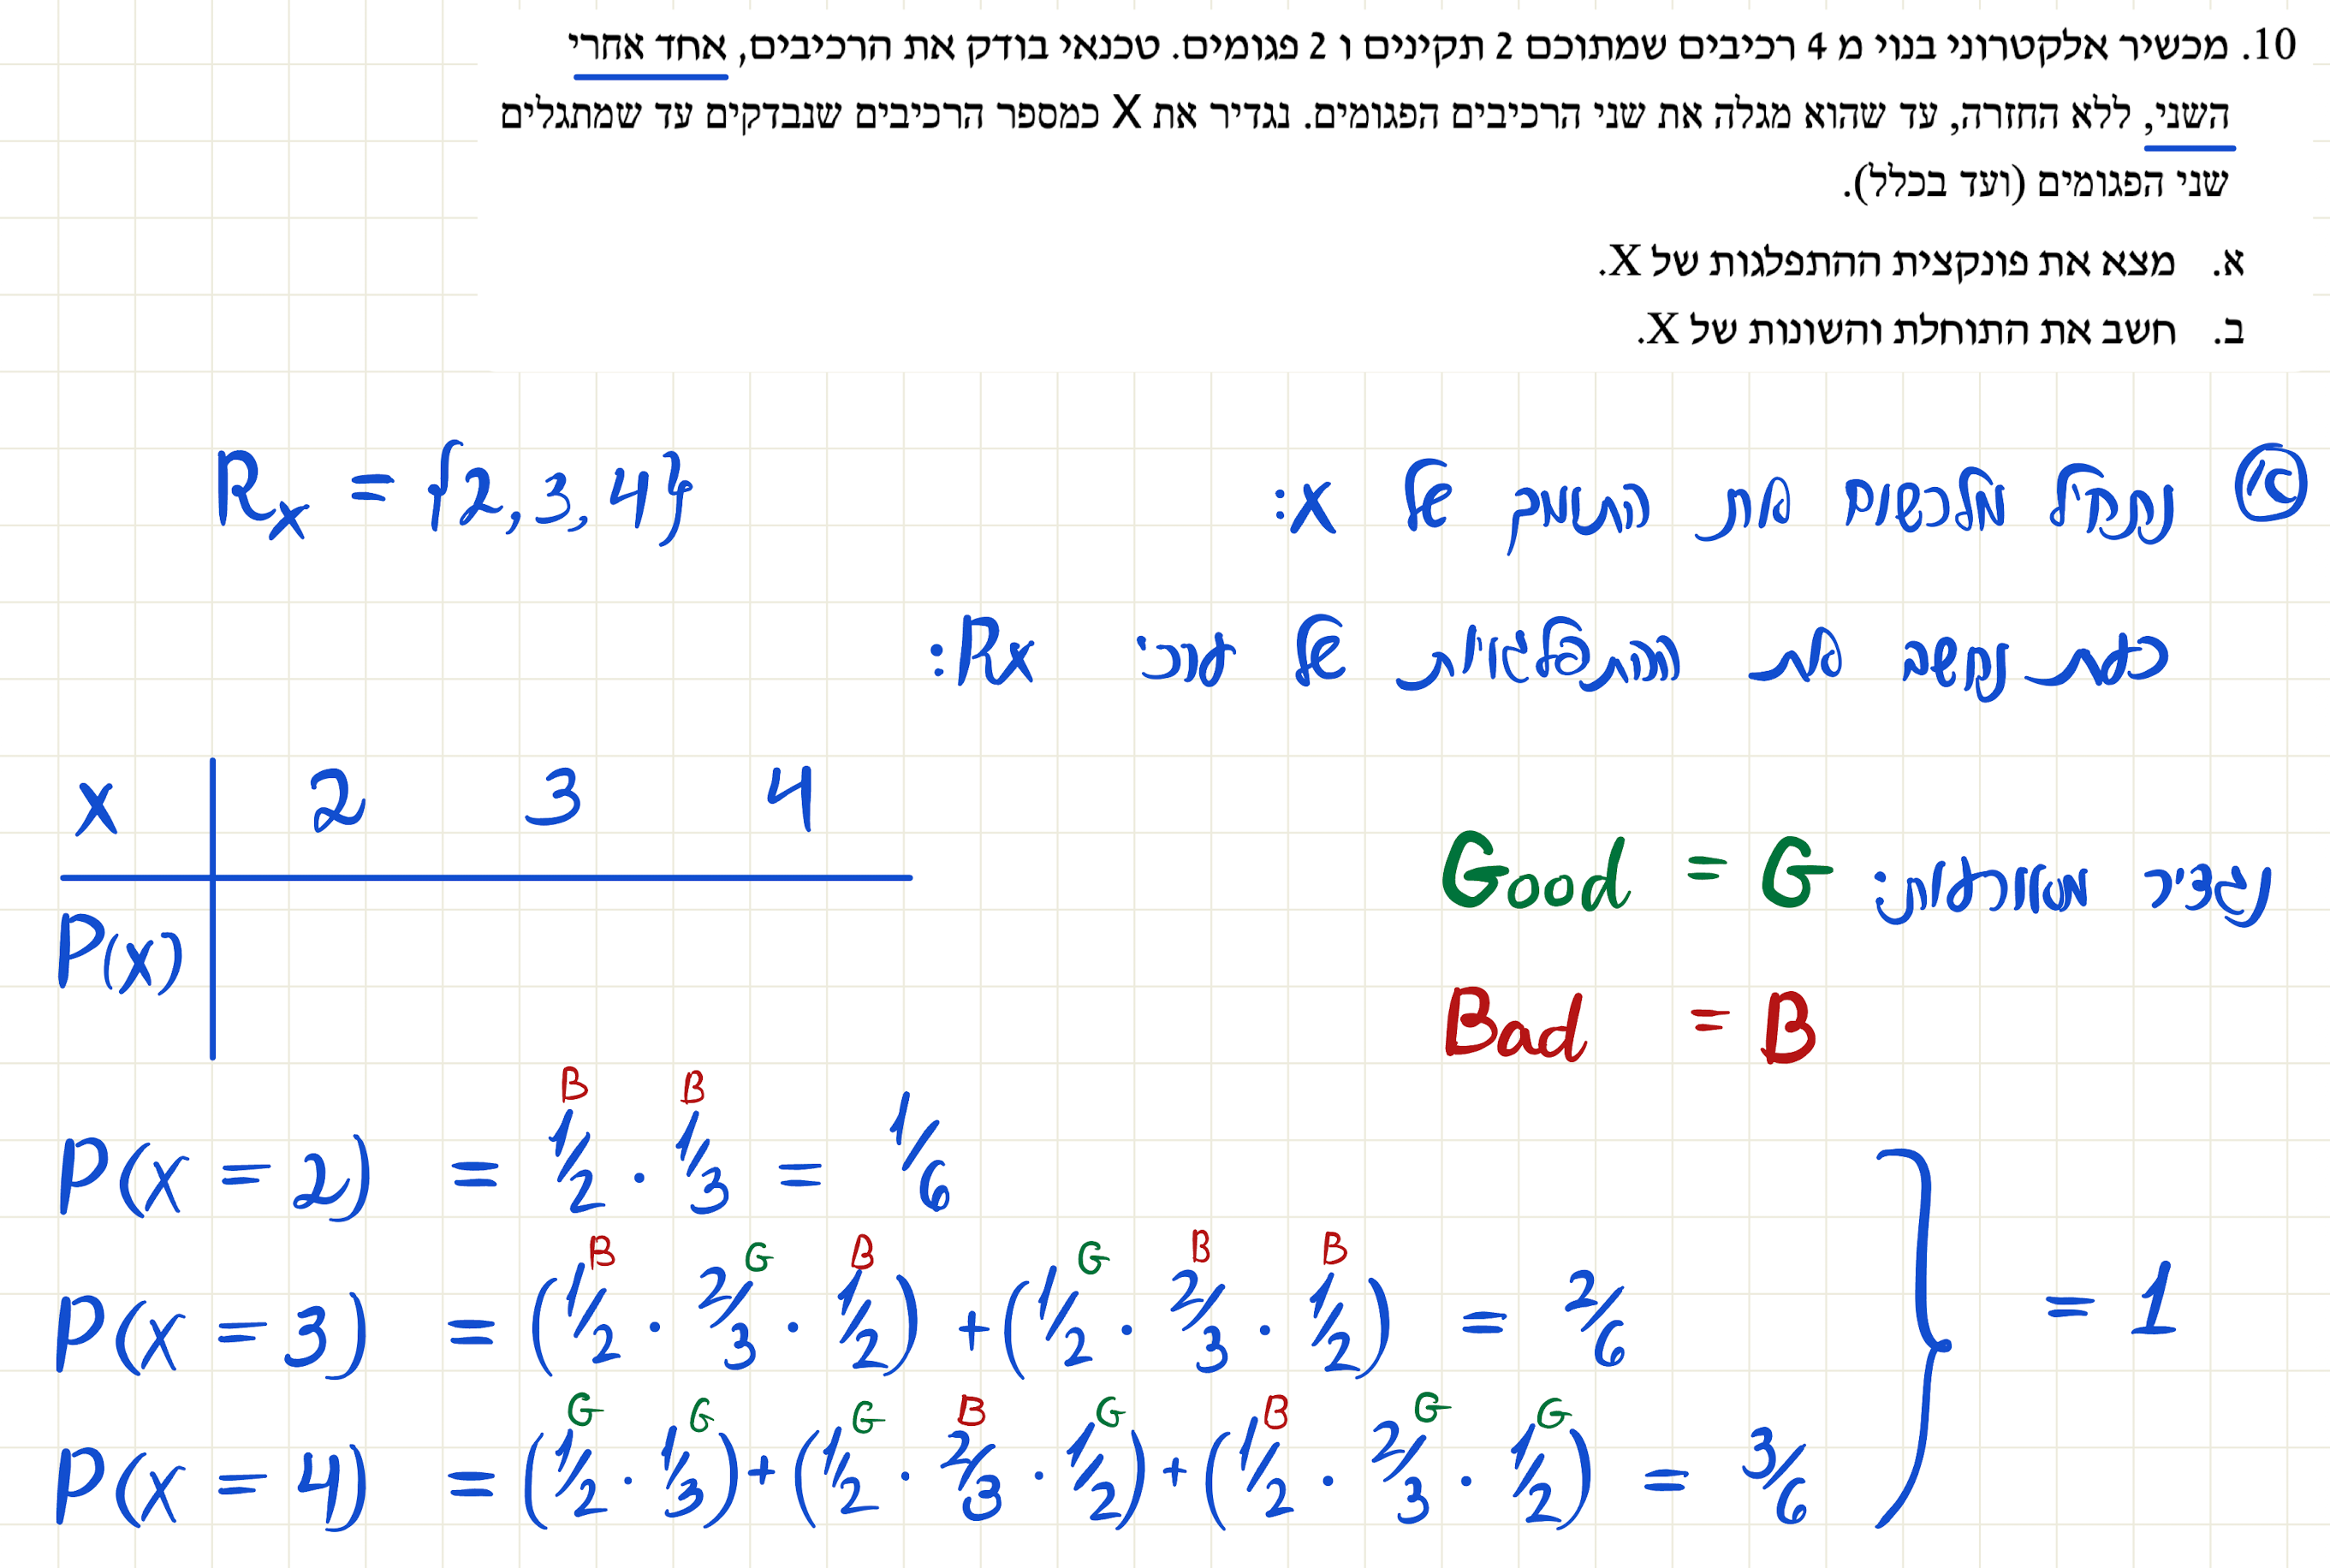 10. מכשיר אלקטרוני בנוי מ 4 רכיבים שמתוכם 2 תקינים ו 2 פגומים. טכנאי בודק את הרכיבים, אחד אחרי
השני, ללא החזרה, עד שהוא מגלה את שני הרכיבים הפגומים. נגדיר את X כמספר הרכיבים שנבדקים עד שמתגלים
שני הפגומים (ועד בכלל).
א. מצא את פונקצית ההתפלגות של X.
ב. חשב את התוחלת והשונות של X.
א נתחיל מלרשום את התומך של x: Rx = {2, 3, 4}
כעת נחשב את ההתפלגויות של ערכי Rx:
x 2 3 4
P(x)
נגדיר מאורעות: G = Good
B = Bad
B B
P(x = 2) = 1/2 · 1/3 = 1/6
B G B G B B
P(x = 3) = (1/2 · 2/3 · 1/2) + (1/2 · 2/3 · 1/2) = 2/6
G G G B G B G G
P(x = 4) = (1/2 · 1/3) + (1/2 · 2/3 · 1/2) + (1/2 · 2/3 · 1/2) = 3/6
} = 1